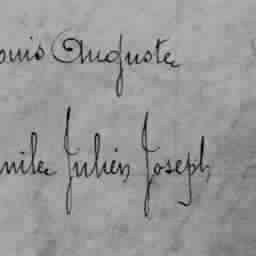 ouis Auguste
mile Julien Joseph